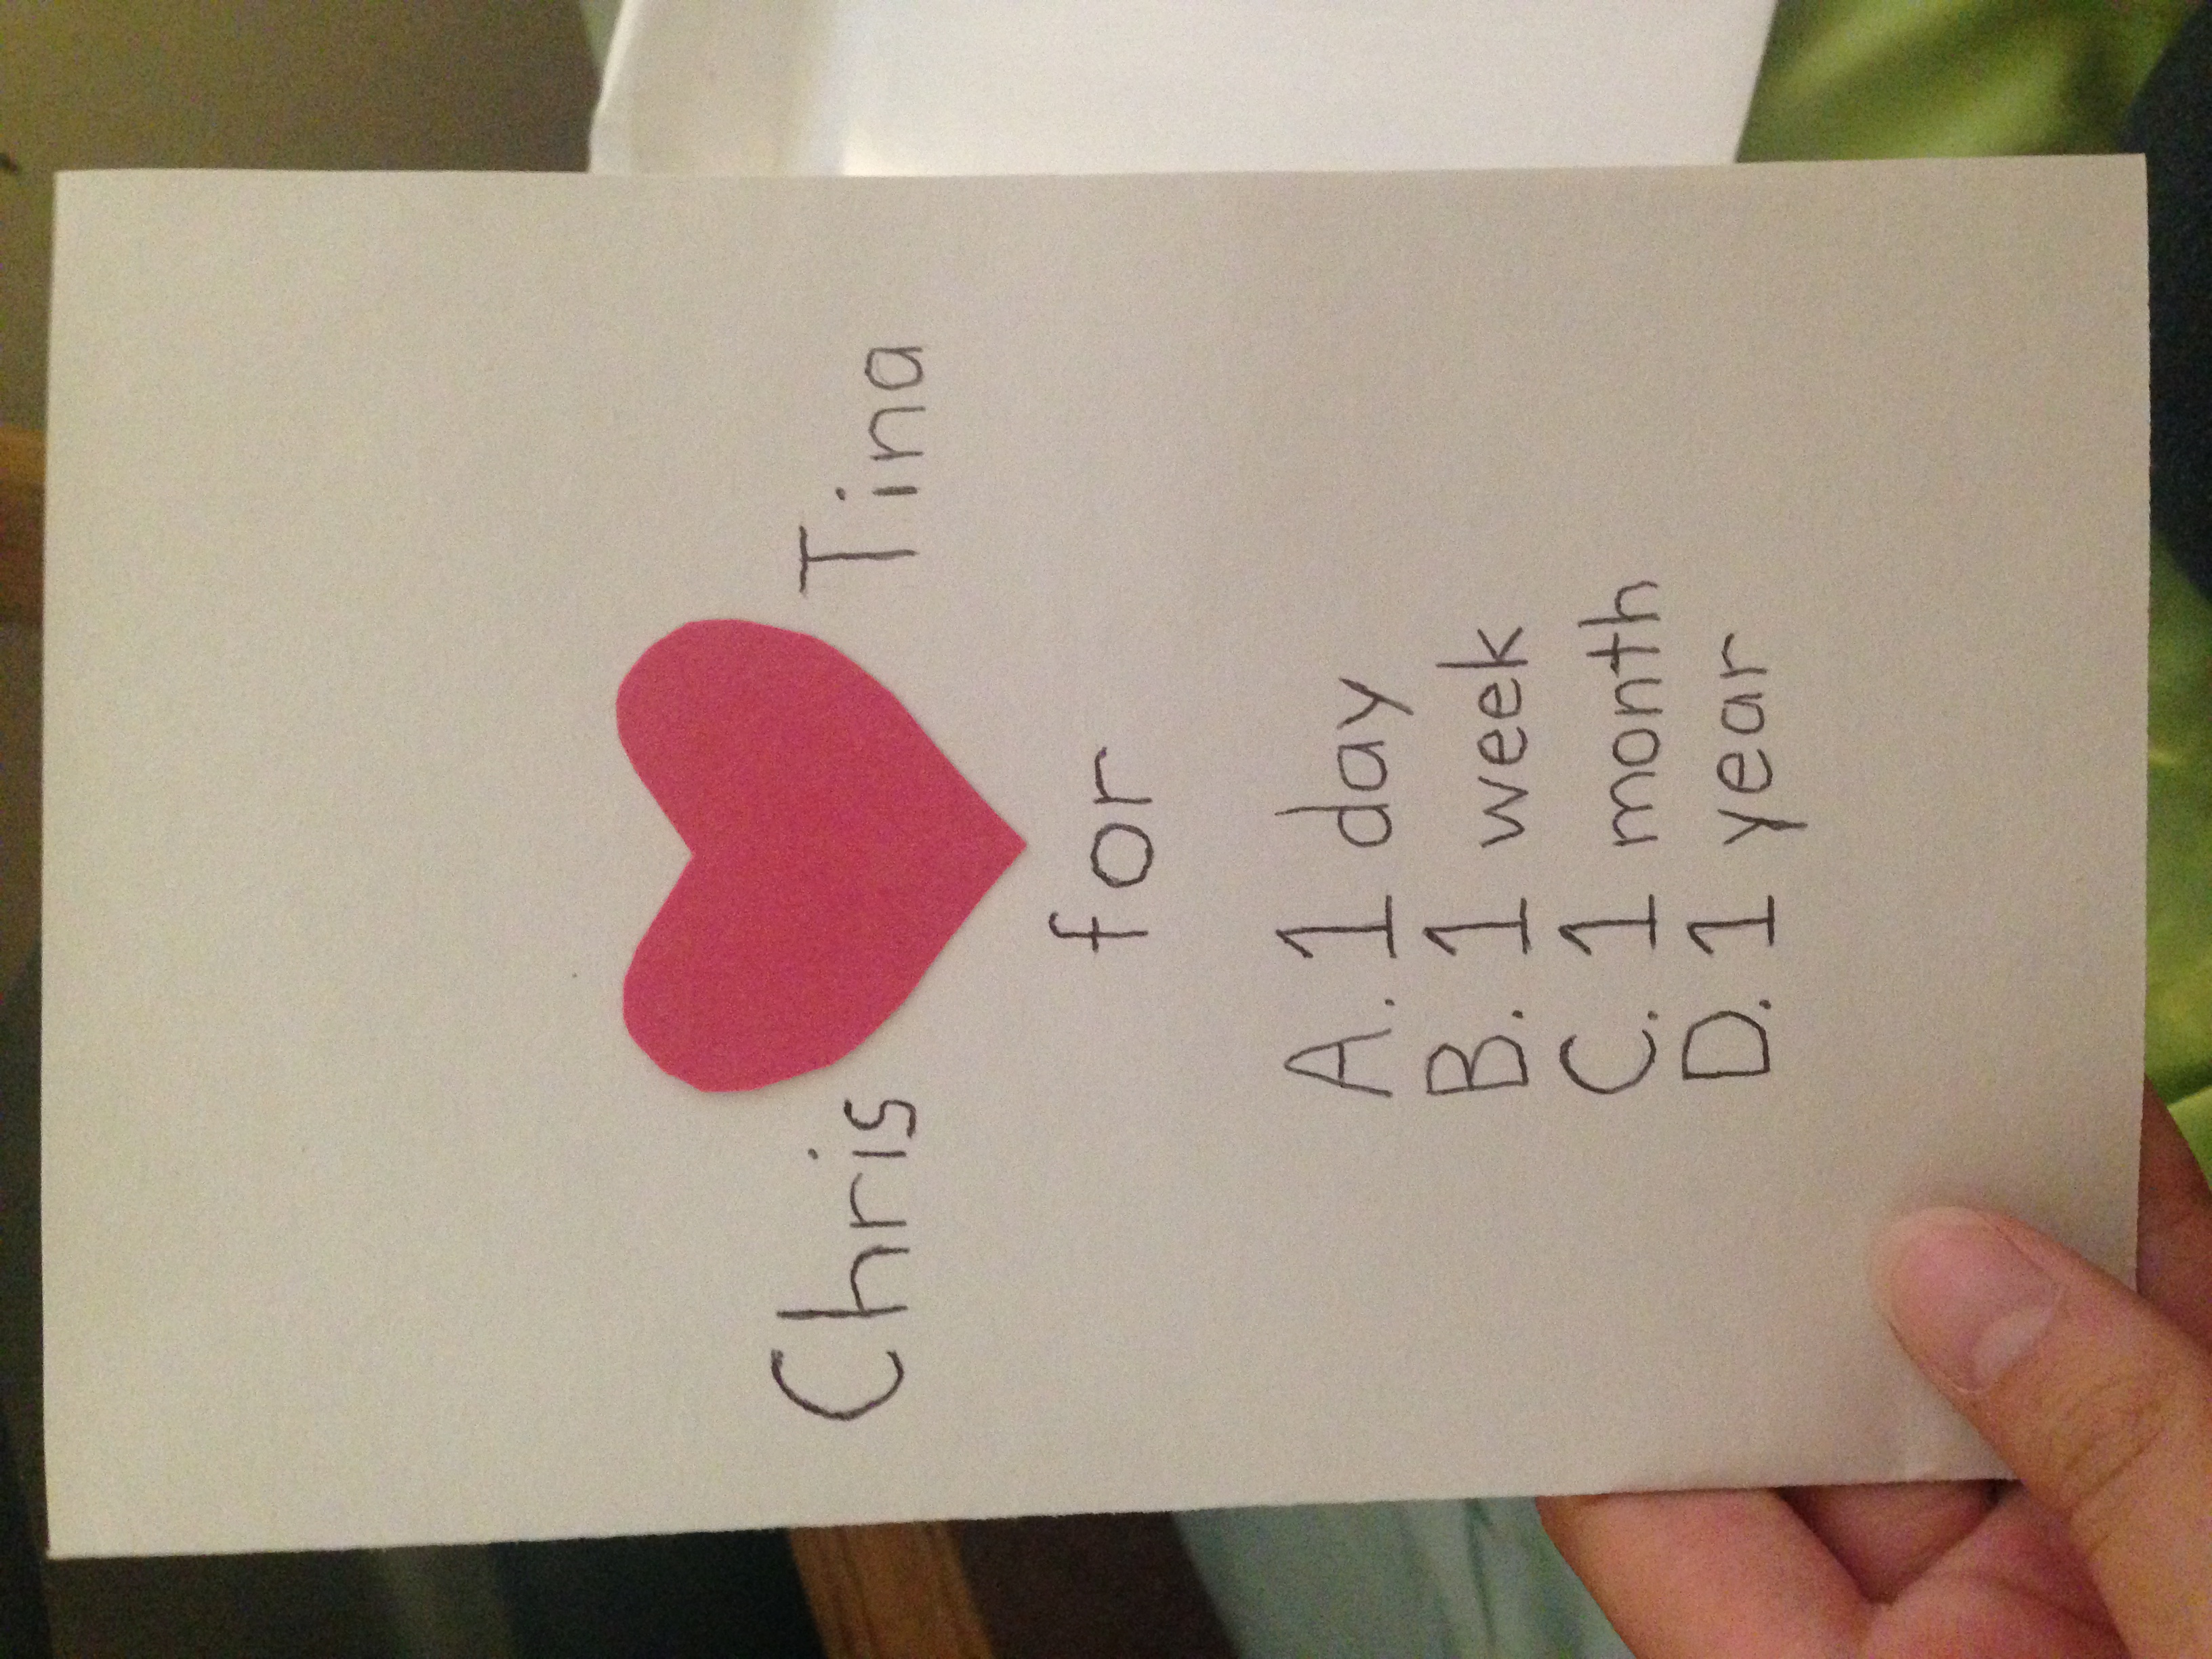 Chris Tina
for
A. 1 day
B. 1 week
C. 1 month
D. 1 year